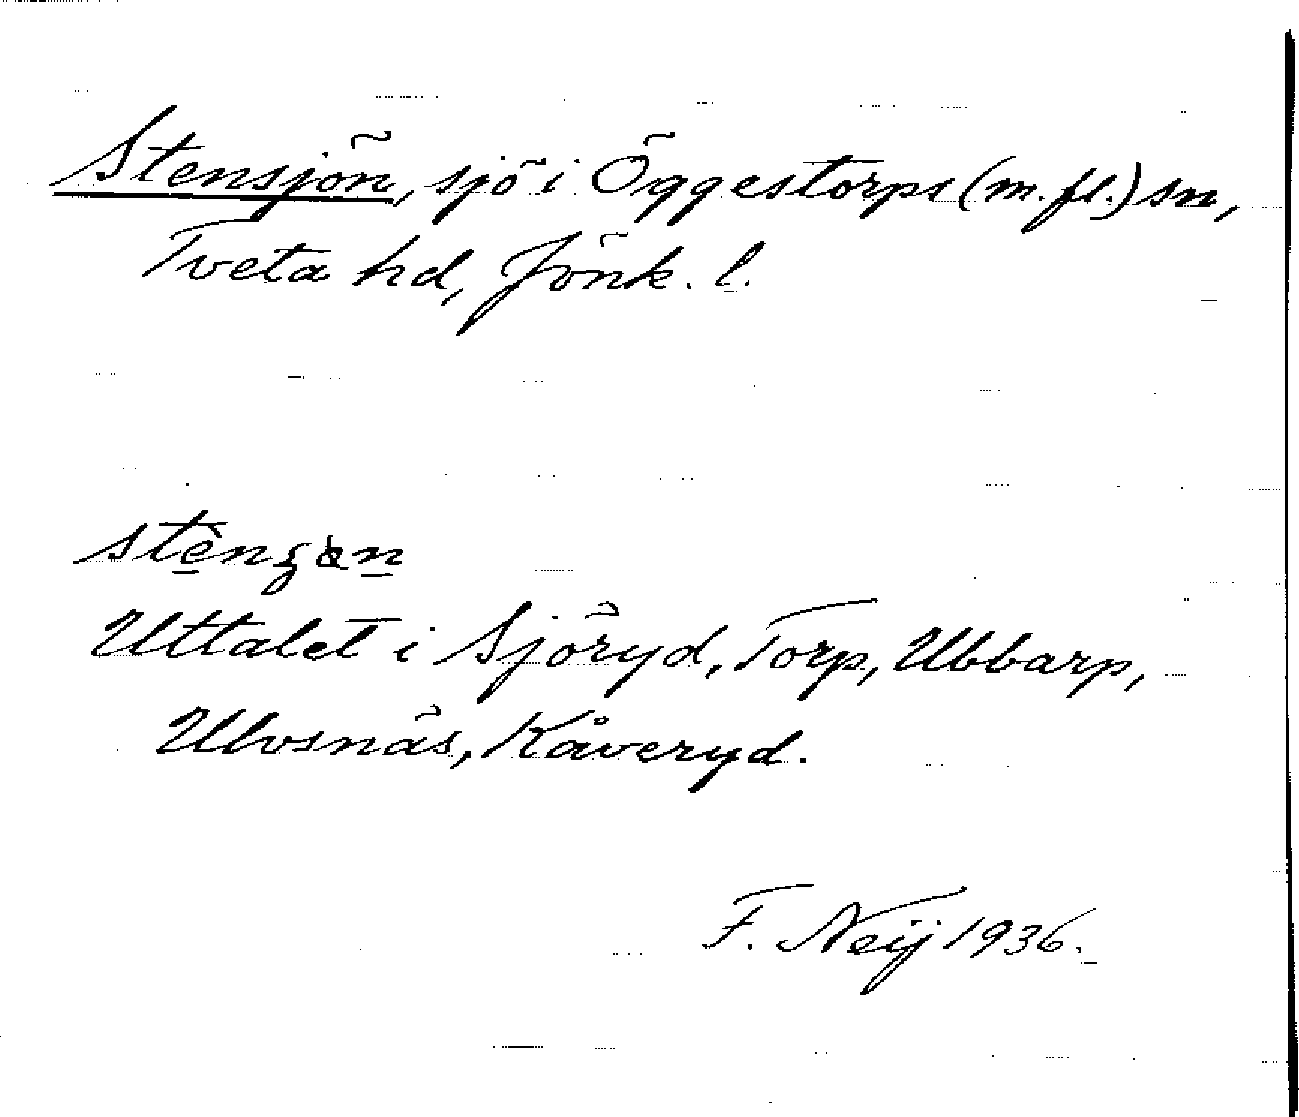 Stensjön, sjö i Öggestorps (m. fl.) sn,
Tveta hd, Jönk. l.
Uttalet i Sjöryd, Torp, Ubbarp,
Ulvsnäs, Kåveryd.
F. Neij 1936.